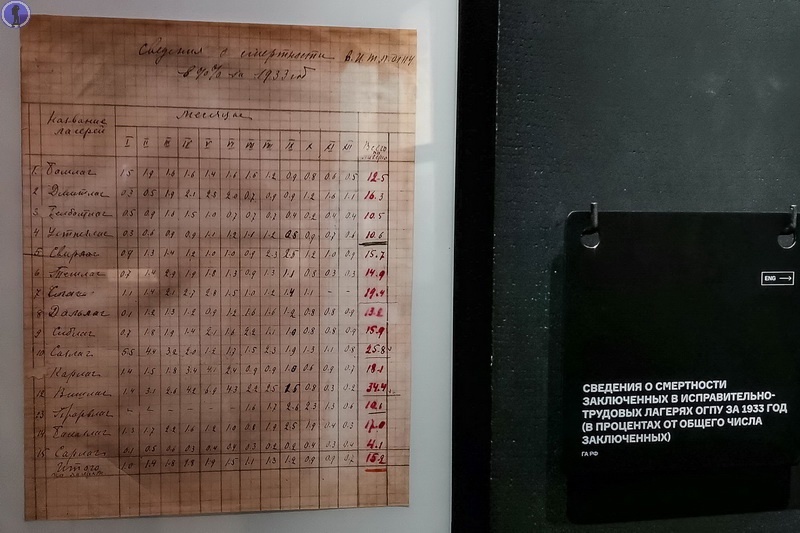 Сведения о смертности в И.Т.Л. ОГПУ
в % % за 1933 год
Название лагерей Месяцы Всего
I II III IV V VI VII VIII IX X XI XII
1 1.5 1.9 1.6 1.6 1.4 1.6 1.6 1.2 0.9 0.8 0.6 0.5 12.5
2 Дмитлаг 0.3 0.5 1.9 2.1 2.0 0.7 0.9 0.9 1.2 1.6 1.1 16.3
3 Белбалтлаг 0.5 0.9 1.6 1.5 1.0 0.7 0.7 0.7 0.4 0.2 0.4 0.4 10.5
4 0.3 0.6 0.9 0.9 1.1 1.2 1.1 1.2 0.8 0.9 0.7 0.6 10.6
5 Свирлаг 0.9 1.3 1.4 1.2 1.0 1.0 0.9 2.3 2.5 1.2 1.0 0.9 15.7
6 Темлаг 0.7 1.4 2.9 1.9 1.8 1.3 0.9 1.3 1.1 0.8 0.3 0.3 14.9
7 1.1 1.4 2.1 2.7 2.8 1.5 1.0 1.2 1.4 1.1 - - 19.4
8 Дальлаг 0.1 1.2 1.3 1.2 0.9 1.2 1.6 1.6 1.2 0.8 0.8 0.9 13.2
9 Сиблаг 0.7 1.8 1.9 1.4 2.1 1.6 2.2 1.1 1.0 0.8 0.8 0.9 15.9
10 Сазлаг 5.5 4.4 3.2 2.0 1.2 1.7 1.5 2.3 1.9 1.3 1.1 0.8 25.8
Карлаг 1.4 1.5 1.8 3.4 4.1 2.4 0.9 0.9 1.0 0.6 0.9 0.7
12 Вишлаг 1.4 3.1 2.6 4.2 6.9 4.3 2.2 2.5 2.6 0.8 0.3 0.2 34.4
13 Прорвлаг - - - - - - 1.6 1.7 2.6 2.3 1.3 0.6 10.6
14 1.3 1.7 2.2 1.6 1.2 1.0 0.8 1.2 2.5 1.9 0.4 0.3
15 Сарлаг 0.1 0.5 0.6 0.3 0.4 0.9 0.3 0.2 0.2 0.4 0.3 0.4 4.1
Итого 1.0 1.4 1.8 1.9 1.5 1.1 1.3 1.2 0.9 0.9 0.7 15.2
ENG
СВЕДЕНИЯ О СМЕРТНОСТИ
ЗАКЛЮЧЕННЫХ В ИСПРАВИТЕЛЬНО-
ТРУДОВЫХ ЛАГЕРЯХ ОГПУ ЗА 1933 ГОД
(В ПРОЦЕНТАХ ОТ ОБЩЕГО ЧИСЛА
ЗАКЛЮЧЕННЫХ)
ГА РФ